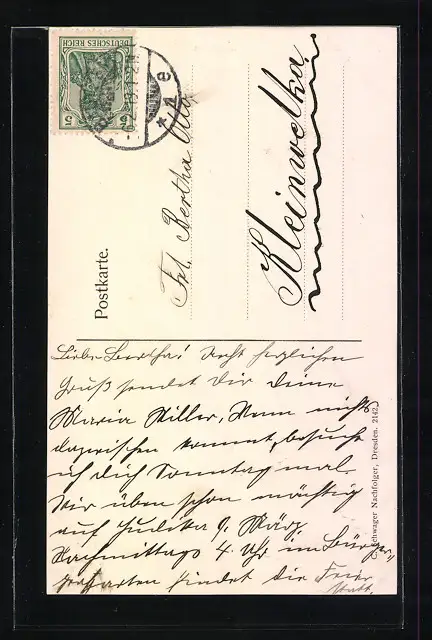 DEUTSCHES REICH
5 5
Postkarte.
Frl. Bertha
Kleinwelka
Liebe Bertha! Recht herzlichen
Gruß sendet Dir Deine
Maria Miller, Wenn nichts
dazwischen kommt, besuche
ich dich Sonntag mal.
Wir üben schon mächtig
auf Judika 9. März
Nachmittags 4 Uhr im Bürger-
garten findet die Feier
statt.
Nachfolger, Dresden. 2142